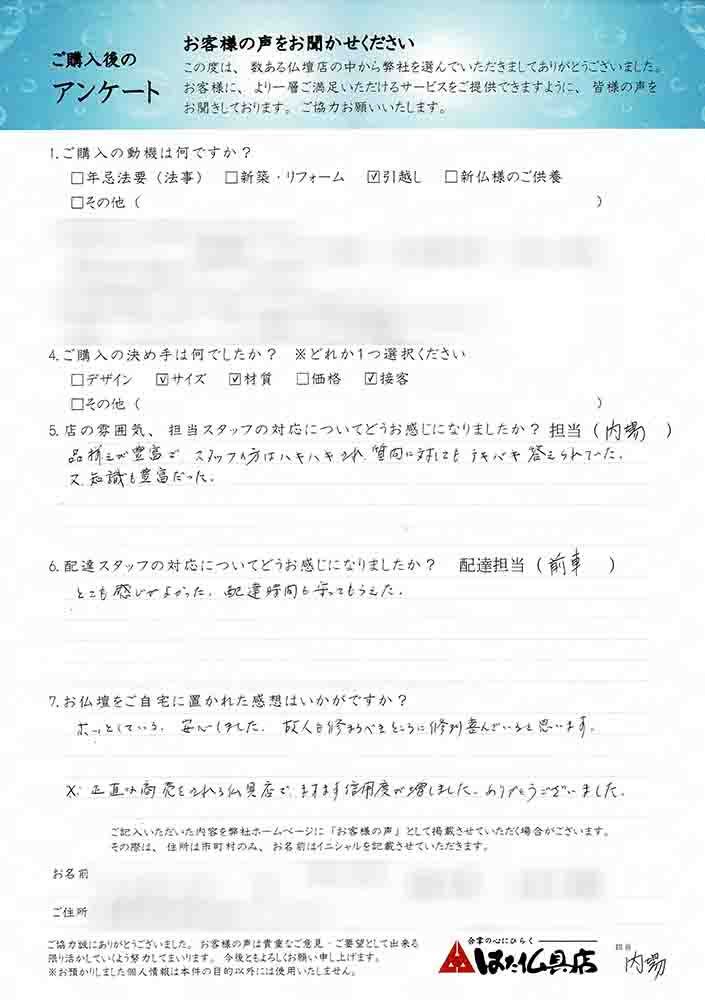 ご購入後の
アンケート
お客様の声をお聞かせください
この度は、数ある仏壇店の中から弊社を選んでいただきましてありがとうございました。
お客様に、より一層ご満足いただけるサービスをご提供できますように、皆様の声を
お聞きしております。ご協力お願いいたします。
1.ご購入の動機は何ですか？
□年忌法要（法事） □新築・リフォーム ☑引越し □新仏様のご供養
□その他（ ）
4.ご購入の決め手は何でしたか？ ※どれか1つ選択ください
□デザイン ☑サイズ ☑材質 □価格 ☑接客
□その他（ ）
5.店の雰囲気、担当スタッフの対応についてどうお感じになりましたか？ 担当（内場 ）
品揃えが豊富で スタッフの方はハキハキされ、質問に対してもテキパキ答えられていた。
又、知識も豊富だった。
6.配達スタッフの対応についてどうお感じになりましたか？ 配達担当（前車 ）
とても感じがよかった。配達時間も守ってもらえた。
7.お仏壇をご自宅に置かれた感想はいかがですか？
ホッとしている。安心しました。故人も修まるべきところに修り喜んでいると思います。
正直な商売をされる仏具店で、ますます信用度が増しました。ありがとうございました。
ご記入いただいた内容を弊社ホームページに「お客様の声」として掲載させていただく場合がございます。
その際は、住所は市町村のみ、お名前はイニシャルを記載させていただきます。
お名前
ご住所
ご協力誠にありがとうございました。お客様の声は貴重なご意見・ご要望として出来る
限り活かしていくよう努力してまいります。今後ともよろしくお願い申し上げます。
※お預かりしました個人情報は本件の目的以外には使用いたしません。
合掌の心にひらく
はた仏具店
担当
内場